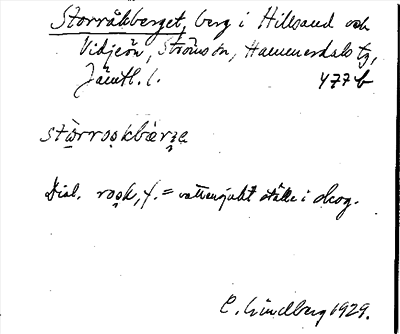 Storråkberget, berg i Hillsand och
Vidjeön, Ströms sn, Hammerdals tg,
Jämtl. l. 477 b
stòrroo̥kbærge
Dial. rook, f. = vattensjukt ställe i skog.
C. Lindberg 1929.